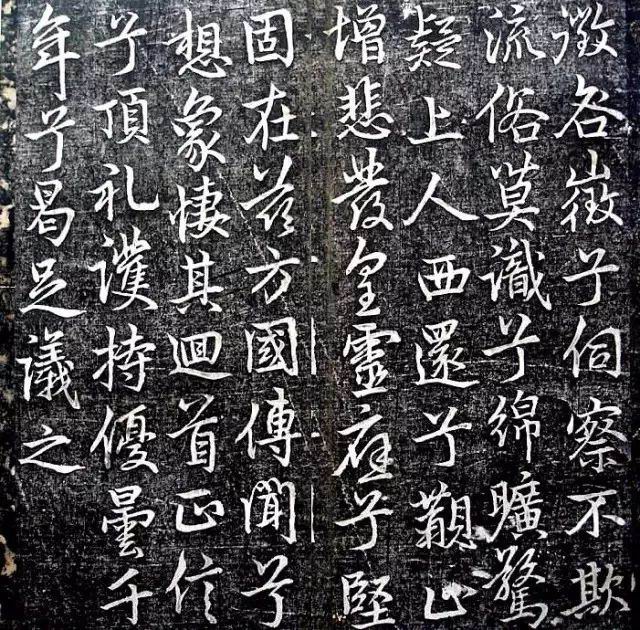 徵各徵兮伺察不欺
流俗莫識兮綿曠驚
疑上人西還兮止
增悲發皇靈應兮堅
固在茲方國傳聞兮
想象悽其迴首正信
兮頂礼護持優曇千
年兮曷足議之